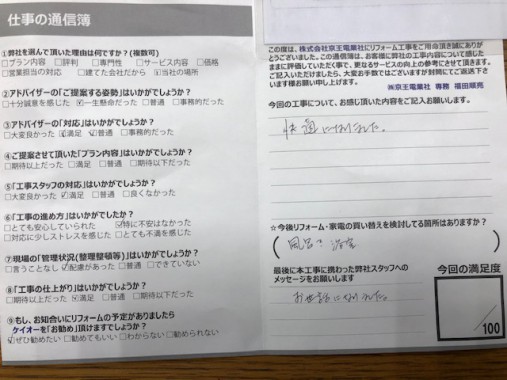 仕事の通信簿
①弊社を選んで頂いた理由は何ですか?(複数可)
□プラン内容 □評判 □専門性 □サービス内容 □価格
□営業担当の対応 □建てた会社だから ☑当社の場所
②アドバイザーの「ご提案する姿勢」はいかがでしょうか?
□十分誠意を感じた ☑一生懸命だった □普通 □事務的だった
③アドバイザーの「対応」はいかがでしょうか?
□大変良かった ☑満足 ☑普通 □事務的だった
④ご提案させて頂いた「プラン内容」はいかがでしょうか?
□期待以上だった ☑満足 □普通 □期待以下だった
⑤「工事スタッフの対応」はいかがでしょうか?
□大変良かった ☑満足 □普通 □良くなかった
⑥「工事の進め方」はいかがでしたか?
□とても安心していられた ☑特に不安はなかった
□対応に少しストレスを感じた □とても不満を感じた
⑦現場の「管理状況(整理整頓等)」はいかがでしょうか?
□言うことなし ☑配慮があった □普通 □できていない
⑧「工事の仕上がり」はいかがでしょうか?
□期待以上だった ☑満足 □普通 □期待以下だった
⑨もし、お知合いにリフォームの予定がありましたら
ケイオーを「お勧め」頂けますでしょうか?
☑ぜひ勧めたい □勧めてもいい □わからない □勧められない
この度は、株式会社京王電業社にリフォーム工事をご用命頂き誠にありが
とうございました。この通信簿は、お客様に弊社の工事内容について感じた
ままに評価していただく事で、更なるサービスの向上の参考にさせて頂きます。
ご記入いただけましたら、大変お手数ではございますが封筒にてご返送下さ
います様お願い申し上げます。
㈱京王電業社 専務 福田順亮
今回の工事について、お感じ頂いた内容をご記入お願します。
快適になりました。
☆今後リフォーム・家電の買い替えを検討してる箇所はありますか?
(風呂
最後に本工事に携わった弊社スタッフへの
メッセージをお願いします
お世話になりました。
今回の満足度
/100